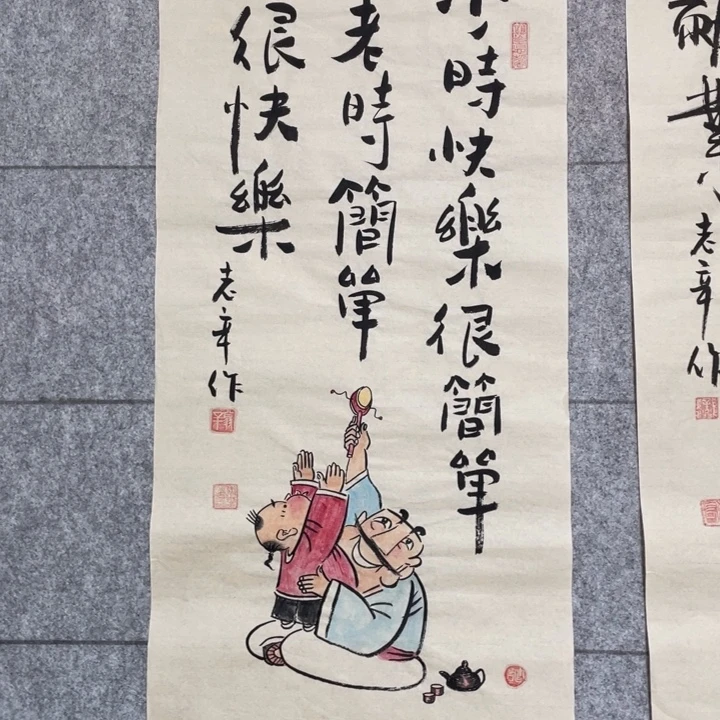 時快樂很簡單
老時簡單
很快樂
老辛作
老辛作